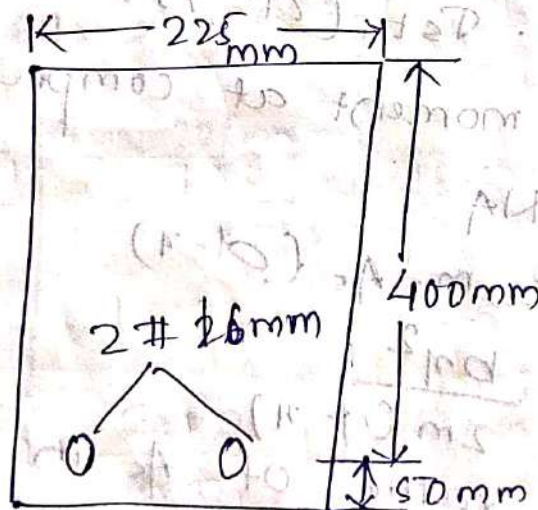 225
mm
400mm
2 # 16mm
50mm